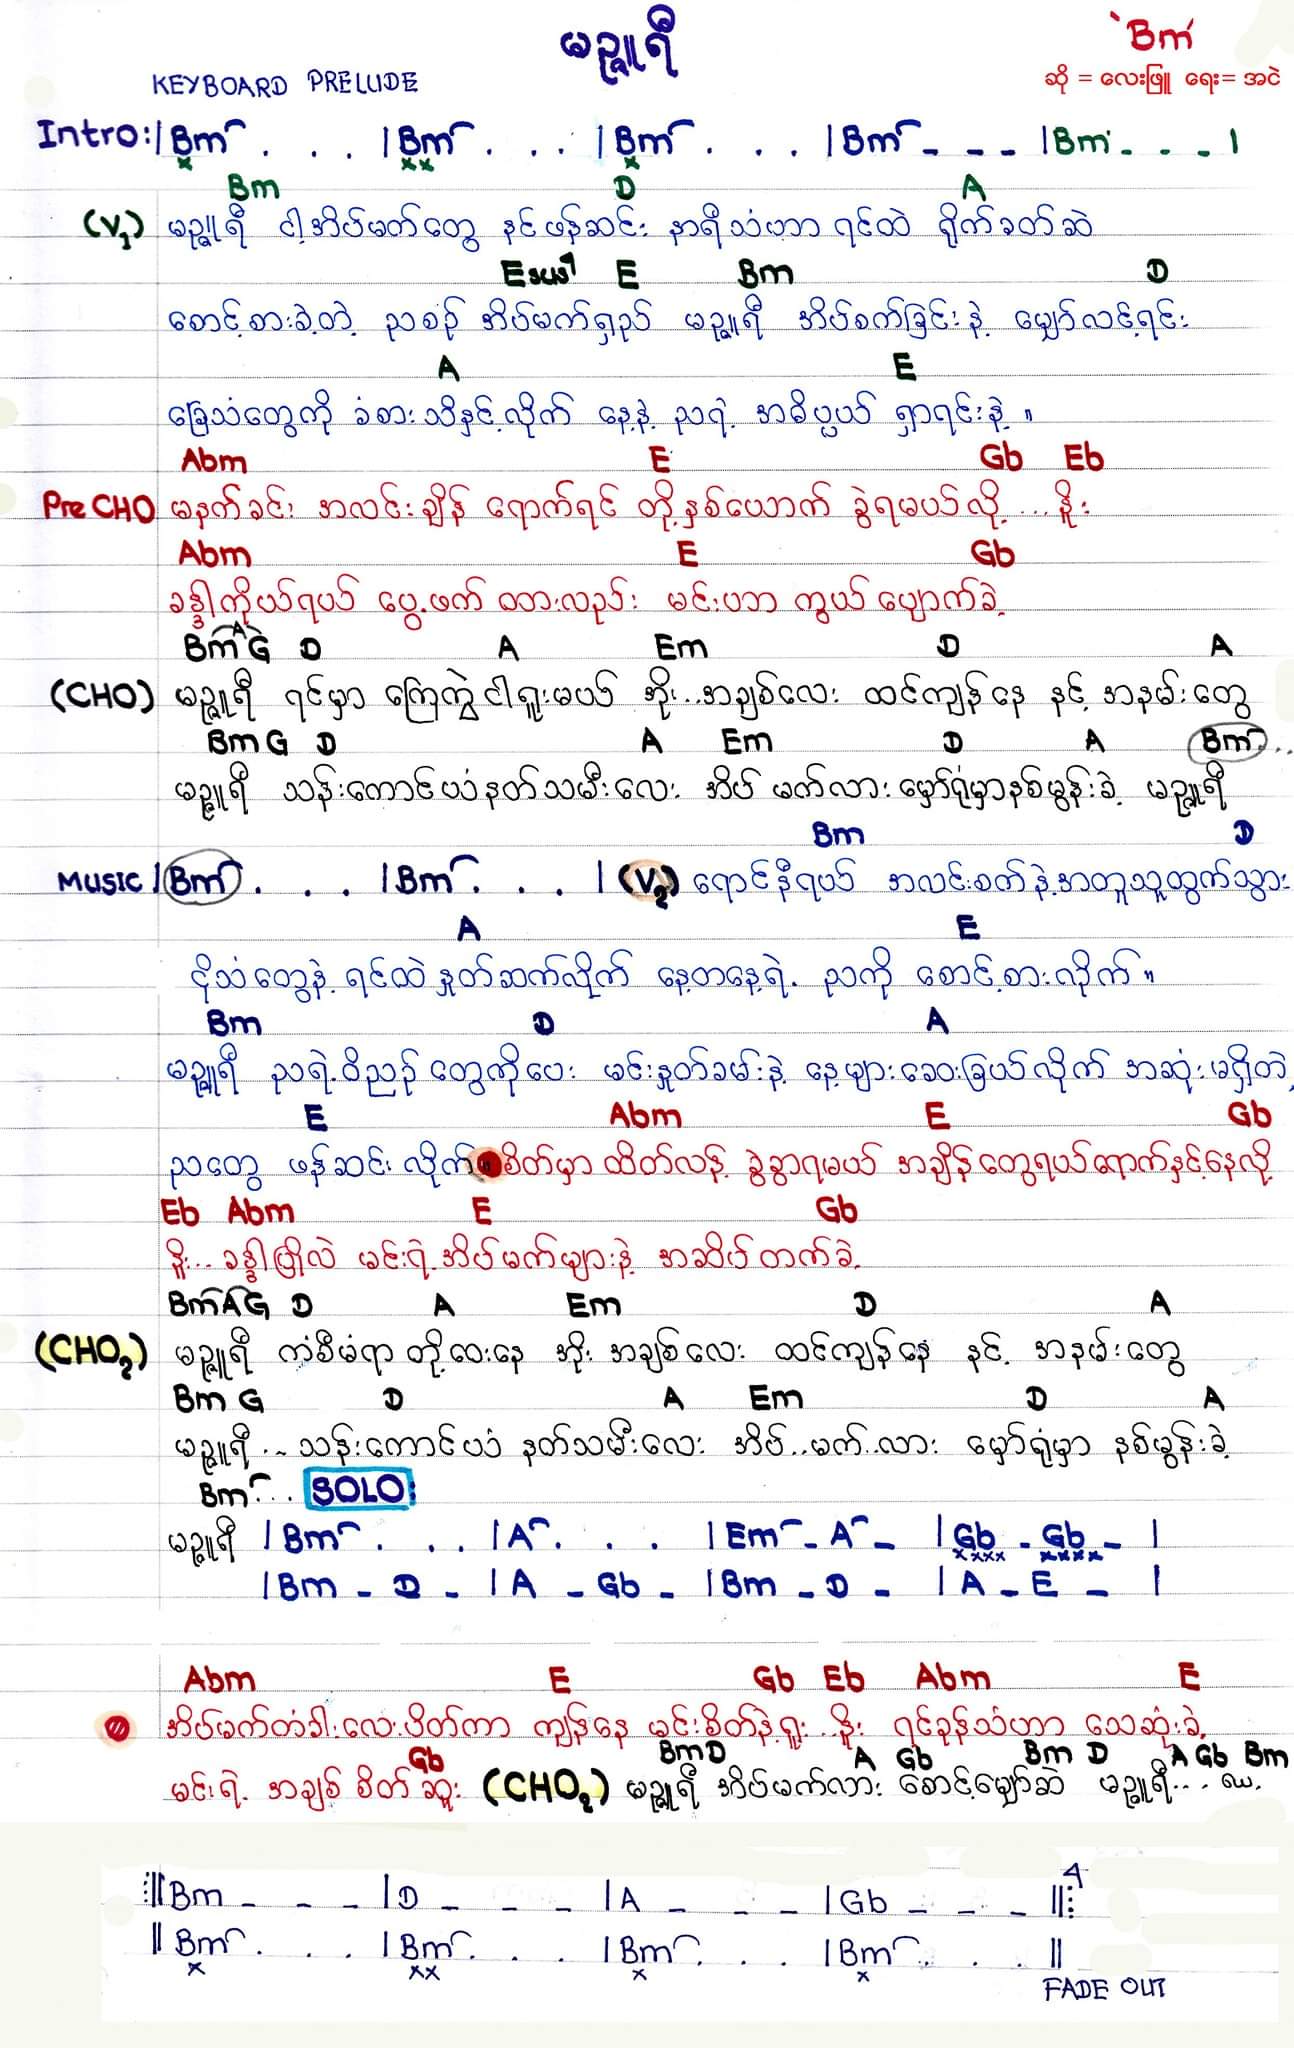 မဥ္ဇူရီ
Bm
KEYBOARD PRELUDE
ဆို = လေးဖြူ ရေး= အငဲ
Intro: | Bm . . . | Bm . . . | Bm . . . | Bm - - - | Bm - - - |
Bm D A
(V1) မဥ္ဇူရီ ငါ့အိပ်မက်တွေ နင်ဖန်ဆင်း နာရီသံဟာ ရင်ထဲ ရိုက်ခတ်ဆဲ
E E Bm D
စောင့်စားခဲ့တဲ့ ညစဉ် အိပ်မက်ရှည် မဥ္ဇူရီ အိပ်စက်ခြင်းနဲ့ မျှော်လင့်ရင်း
A E
ခြေသံတွေကို ခံစားသိနှင့်လိုက် နေ့နဲ့ ညရဲ့ အဓိပ္ပယ် ရှာရင်းနဲ့ ။
Abm E Gb Eb
Pre CHO မနက်ခင်း အလင်းချိန် ရောက်ရင် တို့နှစ်ယောက် ခွဲရမယ်လို့ ... နိုး
Abm E Gb
ခန္ဒါကိုယ်ရယ် ပွေ့ဖက် ထားလည်း မင်းဟာ ကွယ်ပျောက်ခဲ့
Bm A G D A Em D A
(CHO) မဥ္ဇူရီ ရင်မှာ ကြေကွဲငါရူးမယ် အိုး..အချစ်လေး ထင်ကျန်နေ နင့် အနမ်းတွေ
Bm G D A Em D A Bm ..
မဥ္ဇူရီ သန်းကောင်ယံနတ်သမီးလေး အိပ် မက်လား မှော်ရုံမှာနစ်မွန်းခဲ့ မဥ္ဇူရီ
Bm D
MUSIC | Bm . . . | Bm . . . | (V2) ရောင်နီရယ် အလင်းစက်နဲ့အတူသူထွက်သွား
A E
ငိုသံတွေနဲ့ ရင်ထဲ နှုတ်ဆက်လိုက် နေ့တနေ့ရဲ့ ညကို စောင့်စားလိုက် ။
Bm D A
မဥ္ဇူရီ ညရဲ့ဝိညာဉ်တွေကိုပေး မင်းနှုတ်ခမ်းနဲ့ နေ့များခြွေယူလိုက် အဆုံးမရှိတဲ့
E Abm E Gb
ညတွေ ဖန်ဆင်းလိုက် ။ စိတ်မှာထိတ်လန့် ခွဲခွာရမယ် အချိန်တွေရယ်ရောက်နှင့်နေလို့
Eb Abm E Gb
နိုး... ခန္ဒါပြိုလဲ မင်းရဲ့အိပ်မက်များနဲ့ အဆိပ်တက်ခဲ့
Bm A G D A Em D A
(CHO2) မဥ္ဇူရီ ကံစီမံရာ တို့ဝေးနေ အိုး အချစ်လေး ထင်ကျန်နေ နင့် အနမ်းတွေ
Bm G D A Em D A
မဥ္ဇူရီ ... သန်းကောင်ယံ နတ်သမီးလေး အိပ်..မက်..လား မှော်ရုံမှာ နစ်မွန်းခဲ့
Bm ... SOLO:
မဥ္ဇူရီ | Bm . . . | A . . . | Em - A - | Gb - Gb - |
| Bm - D - | A - Gb - | Bm - D - | A - E - |
Abm E Gb Eb Abm E
အိပ်မက်တံခါးလေးပိတ်ကာ ကျန်နေ မင်းစိတ်နဲ့ရူး ..နိုး ရင်ခုန်သံဟာ သေဆုံးခဲ့
Gb Bm D A Gb Bm D A Gb Bm
မင်းရဲ့ အချစ် စိတ်ဆူး (CHO2) မဥ္ဇူရီ အိပ်မက်လား စောင့်မျှော်ဆဲ မဥ္ဇူရီ...
Bm - - - | D - - - | A - - - | Gb - - - 4
Bm . . . | Bm . . . | Bm . . . | Bm . . .
FADE OUT